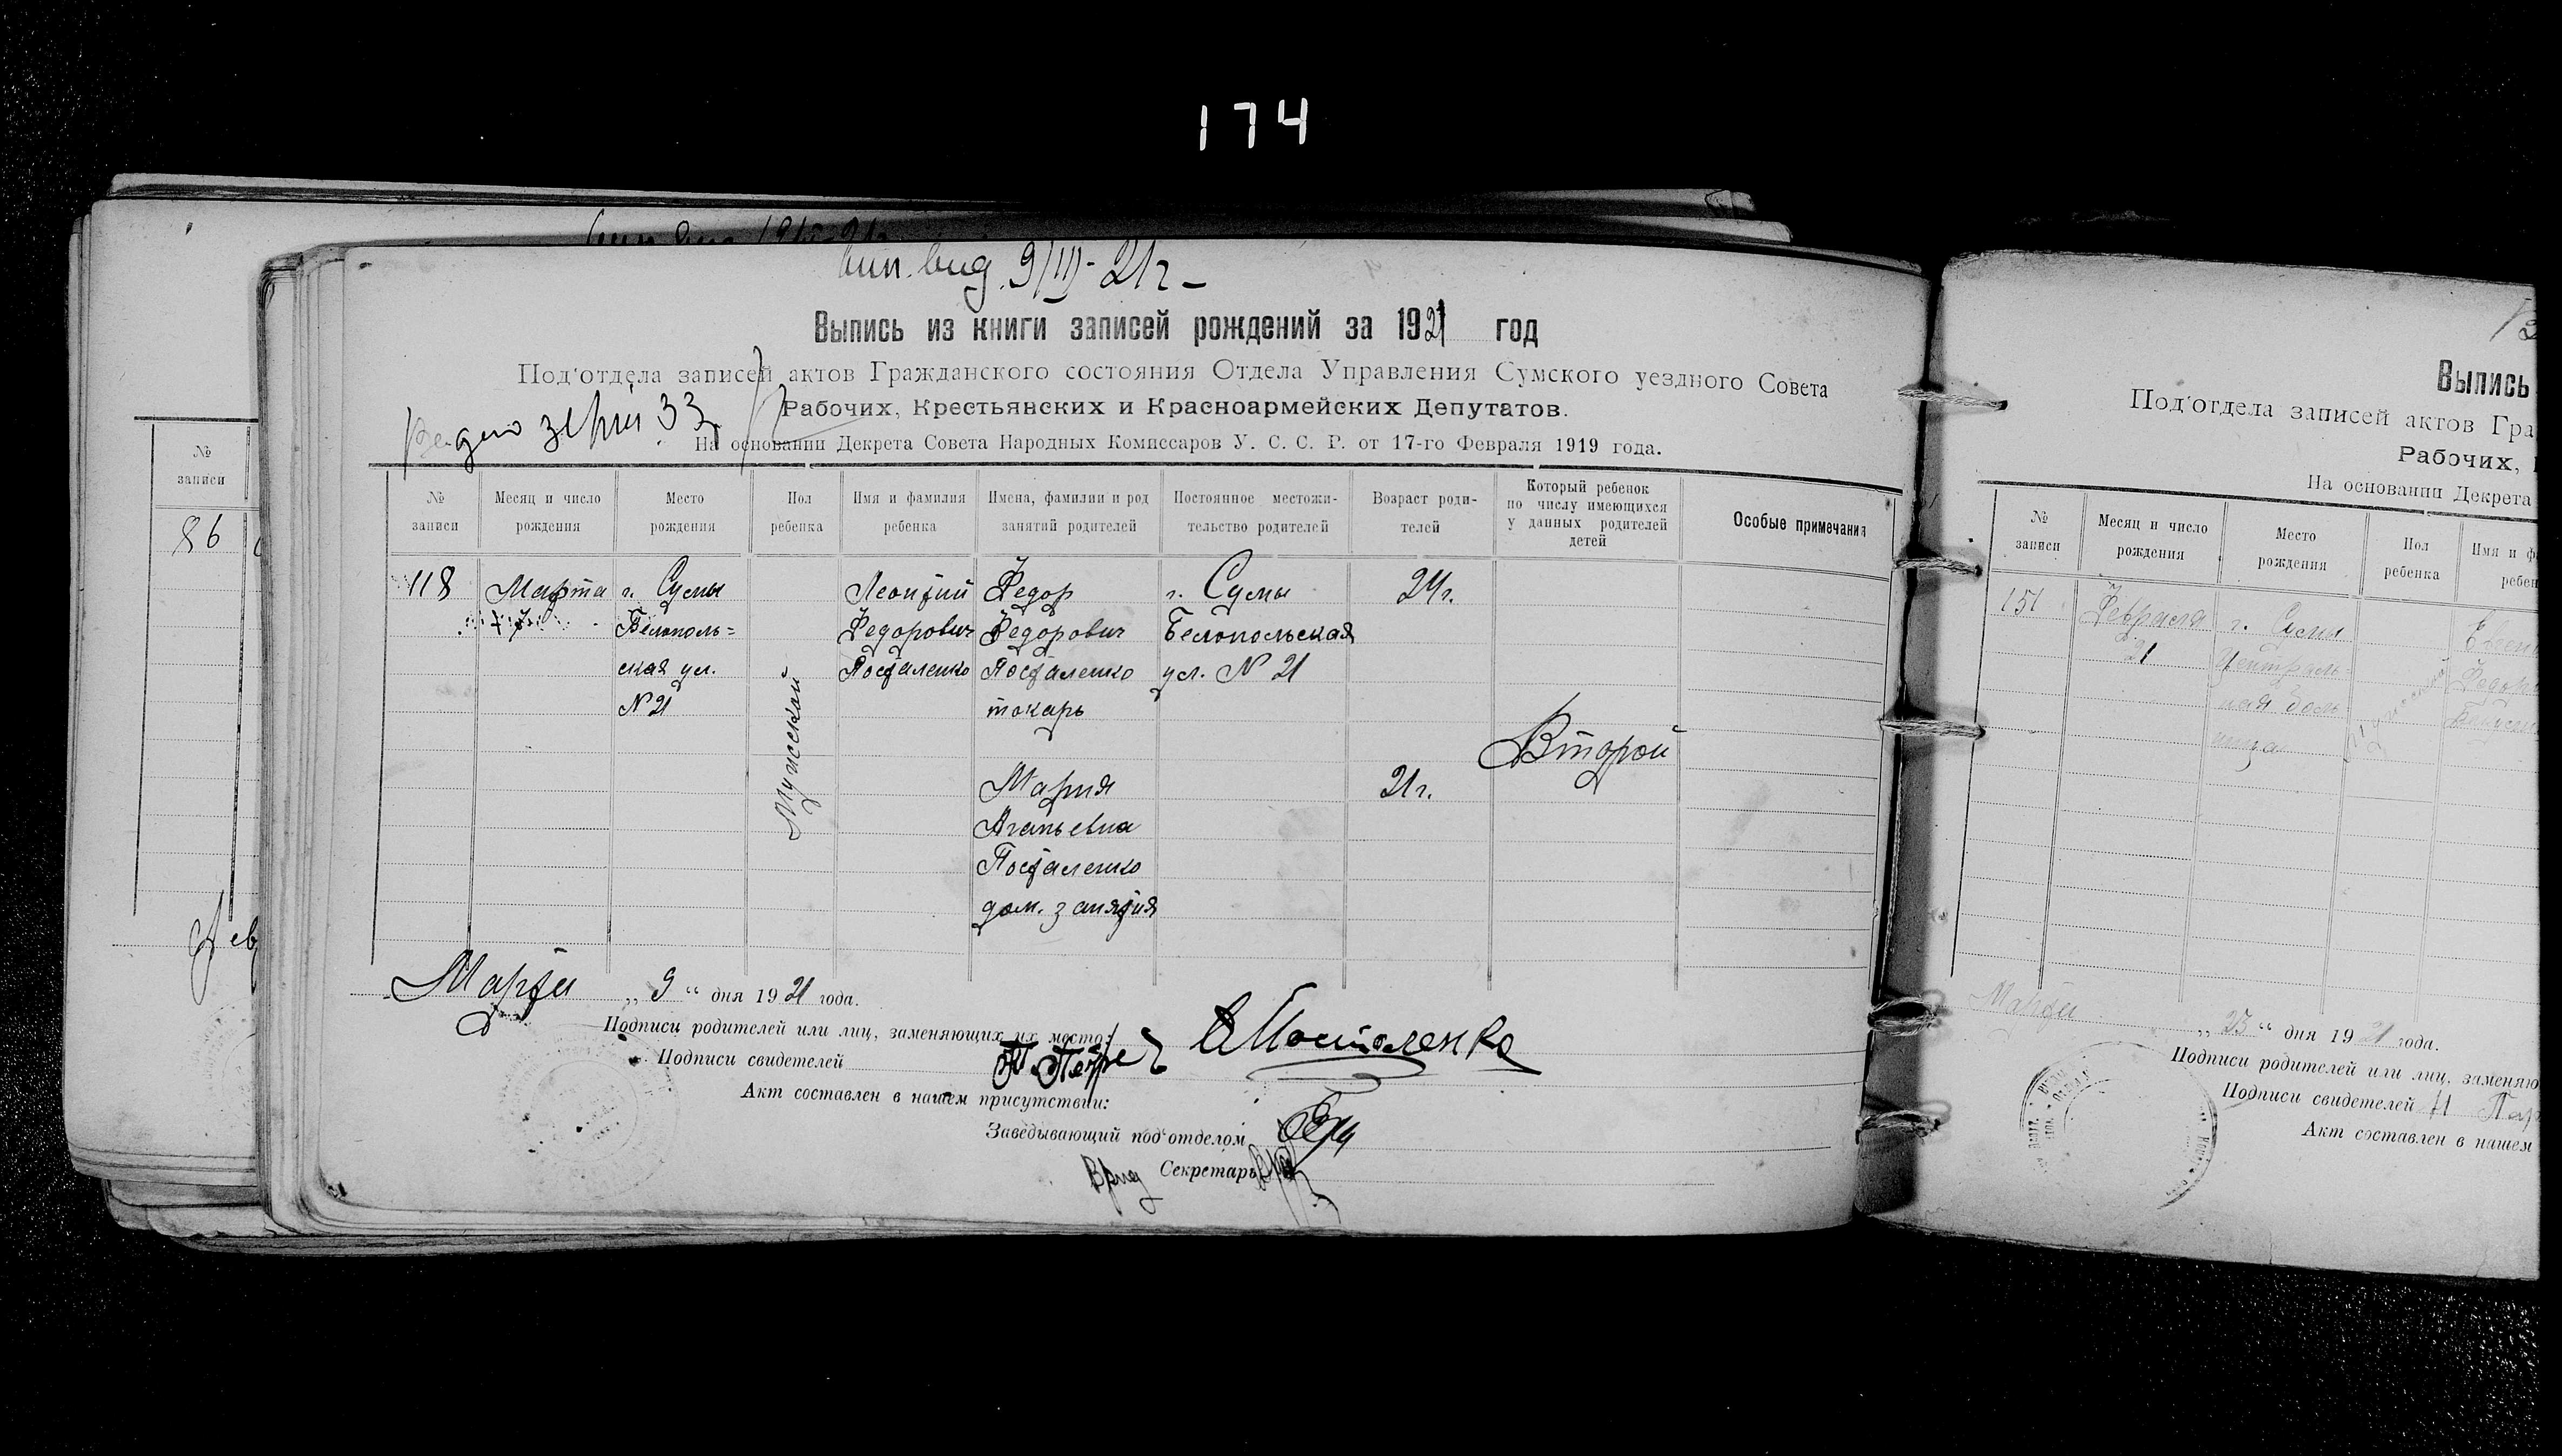 174
вып. выд. 9/III-21 г.
Выпись из книги записей рождений за 1921 год
Под'отдела записей актов Гражданского состояния Отдела Управления Сумского уездного Совета
Рабочих, Крестьянских и Красноармейских Депутатов.
На основании Декрета Совета Народных Комиссаров У. С. С. Р. от 17-го Февраля 1919 года.
№ записи
Месяц и число рождения
Место рождения
Пол ребенка
Имя и фамилия ребенка
Имена, фамилии и род занятий родителей
Постоянное местожительство родителей
Возраст родителей
Который ребенок по числу имеющихся у данных родителей детей
Особые примечания
118
Марта
7
г. Сумы
Белополь=
ская ул.
№ 21
Мужской
Леонтий
Федорович
Посталенко
Федор
Федорович
Посталенко
токарь
Мария
Агапьевна
Посталенко
дом. занятия
г. Сумы
Белопольская
ул. № 21
24 г.
21 г.
Второй
Марта „9“ дня 1921 года.
Подписи родителей или лиц, заменяющих их место:
Посталенко
Подписи свидетелей
Акт составлен в нашем присутствии:
Заведывающий под'отделом
Врид Секретарь
№
записи
86
Выпись
Под'отдела записей актов Гра
Рабочих,
На основании Декрета
№ записи
Месяц и число рождения
Место рождения
Пол ребенка
Имя и ф
ребен
151
Февраля
21
г. Сумы
Централь
ная боль
ница
Мужской
Марта „23“ дня 1921 года.
Подписи родителей или лиц, заменяю
Подписи свидетелей
Акт составлен в нашем